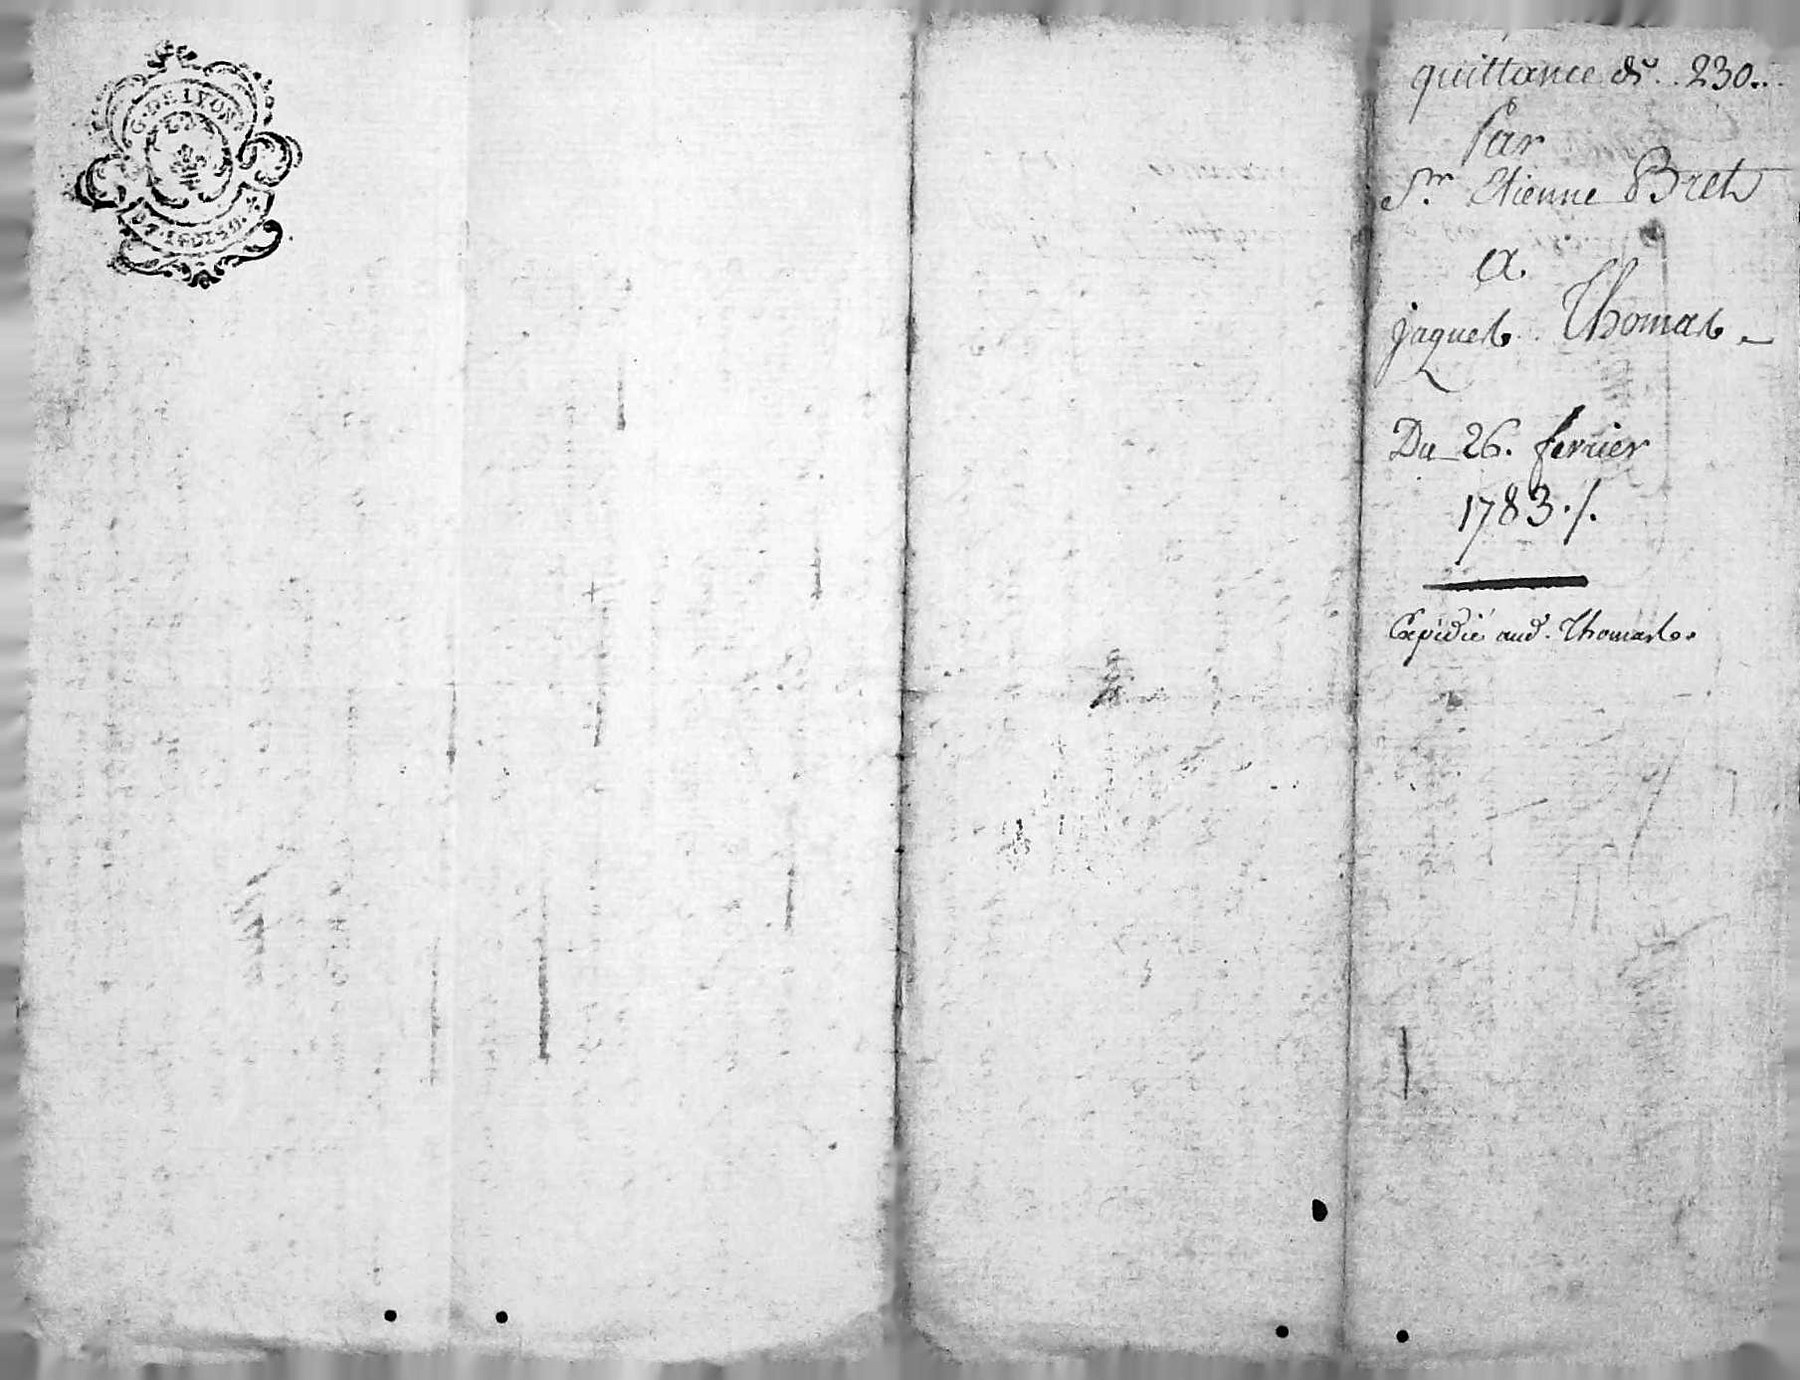 G. DE LYON
quittance de. 230..
Par
Sr. Etienne Bret
A.
jaques Thomas
Du 26. fevrier
1783./.
Expédié aud. Thomas.